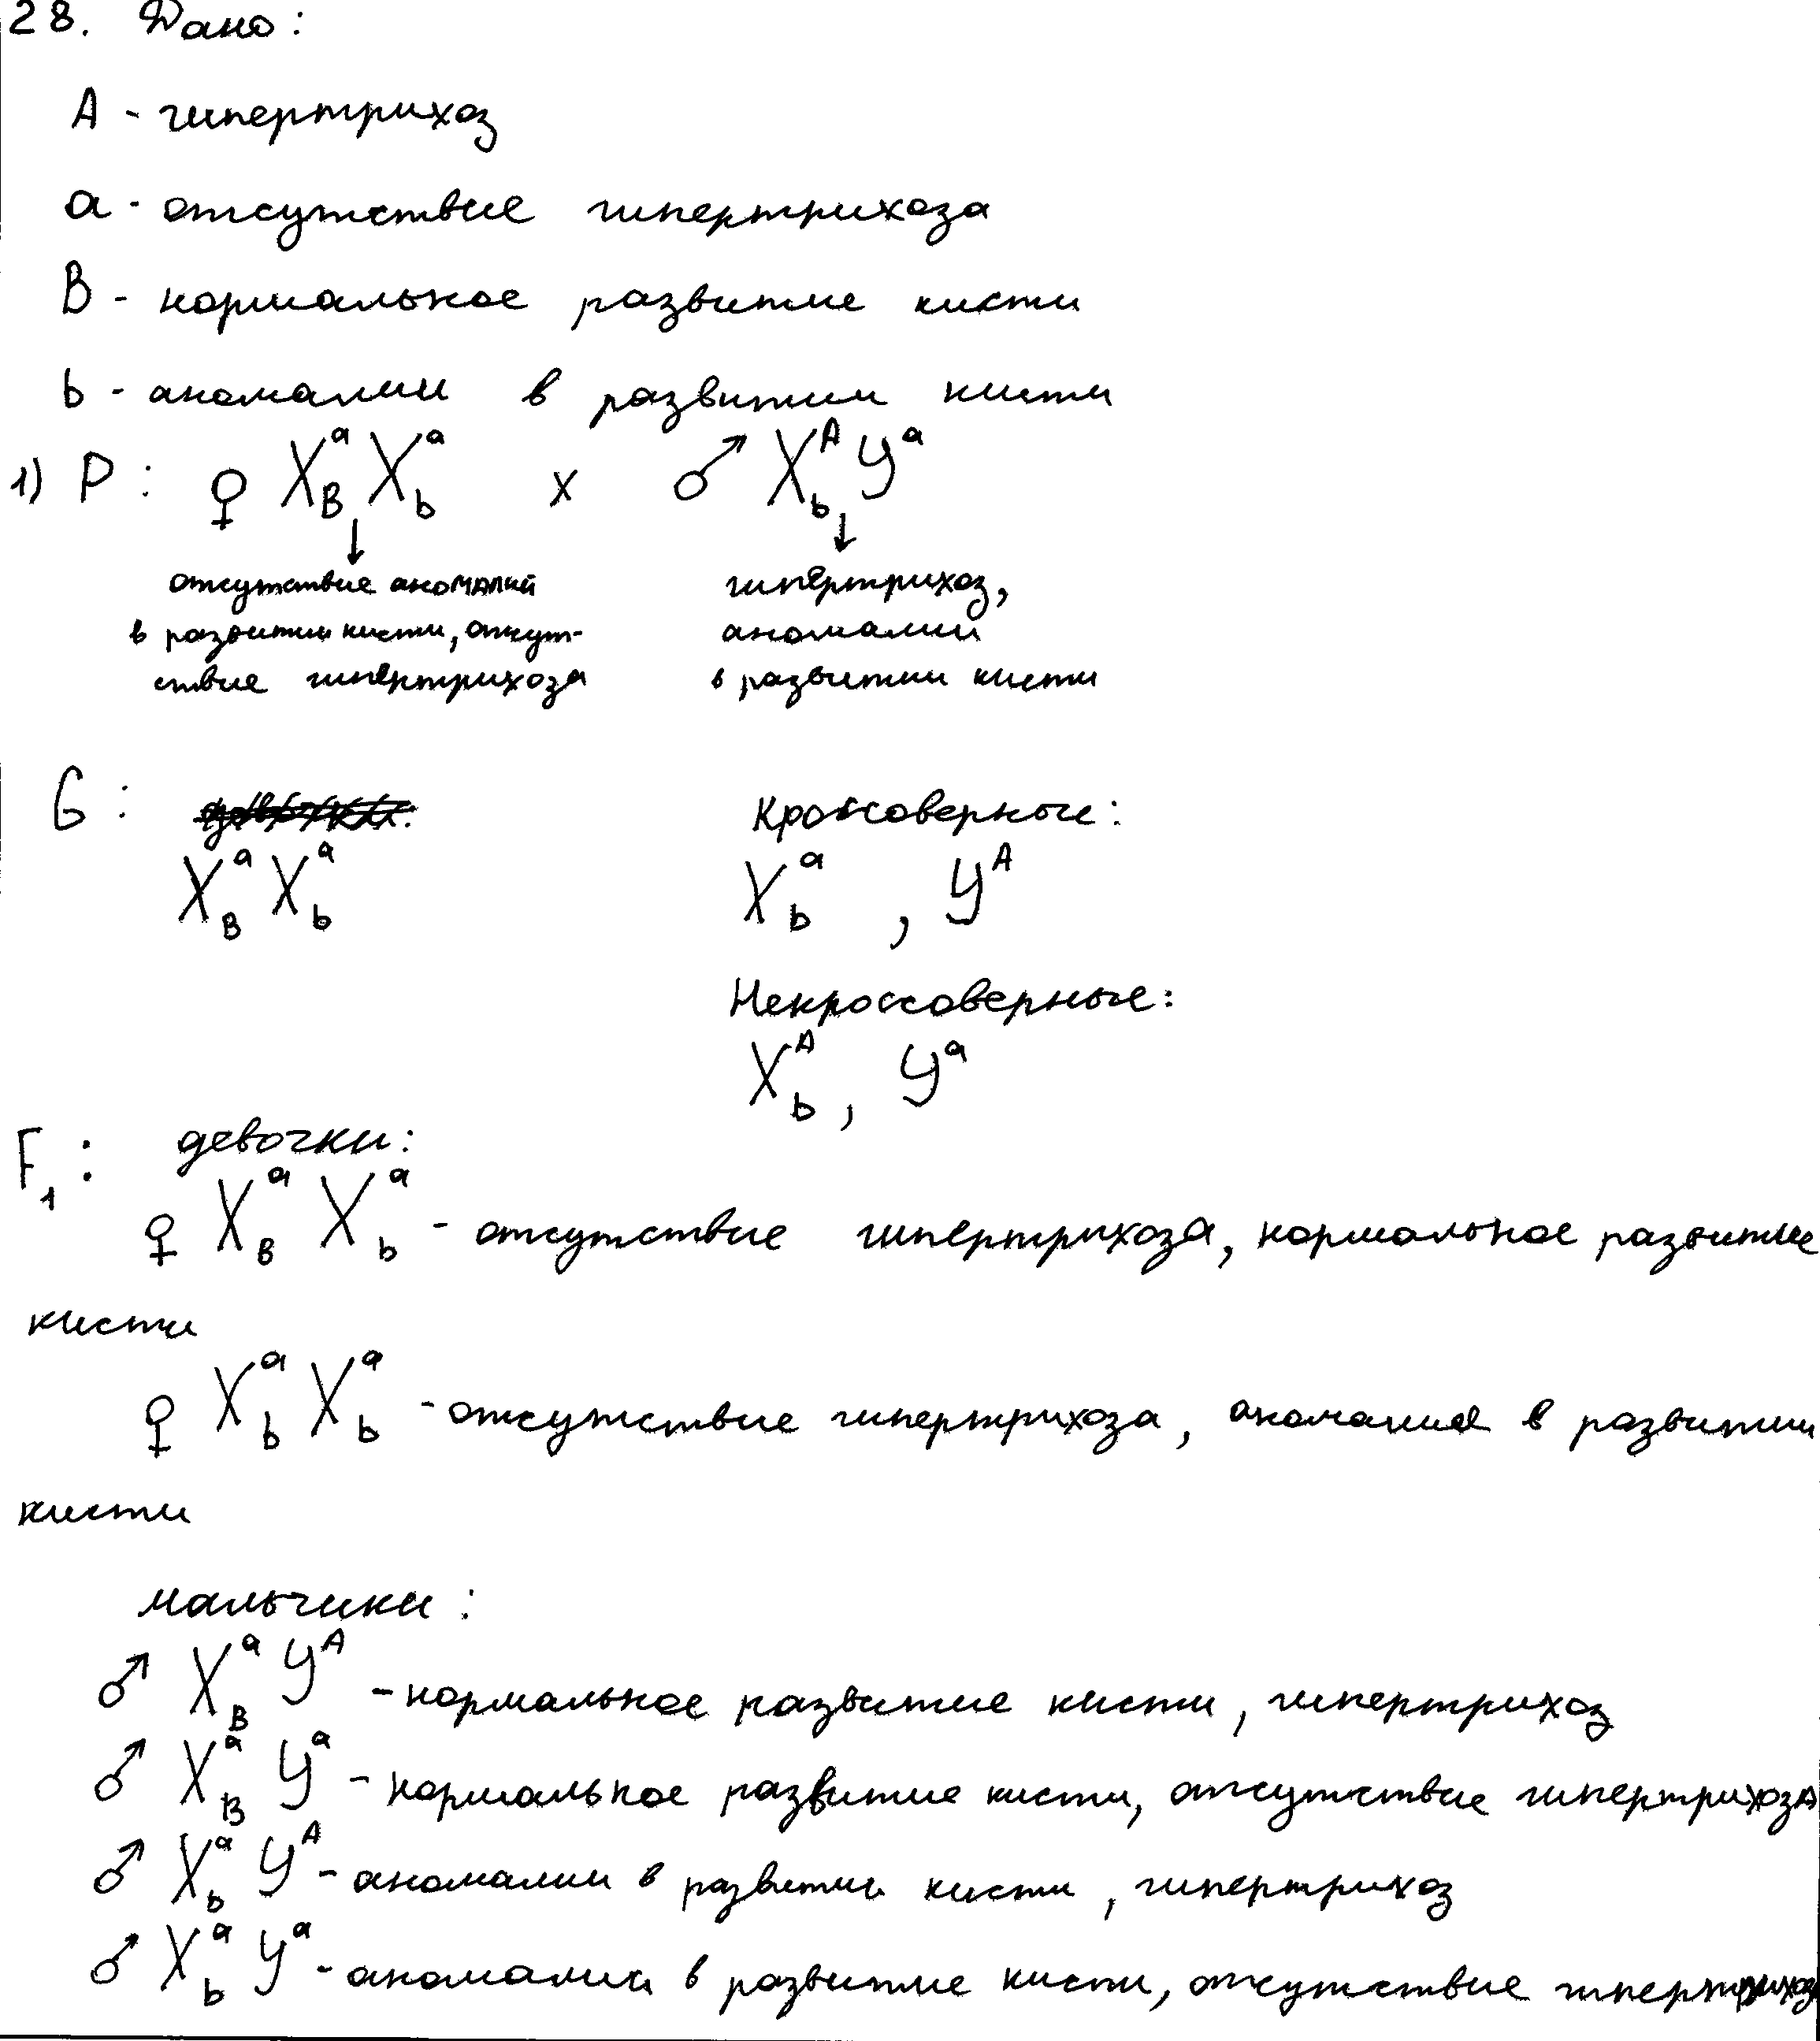 28. Дано:
A - гипертрихоз
a - отсутствие гипертрихоза
B - нормальное развитие кисти
b - аномалии в развитии кисти
1) P: ♀ X^a_B X^a_b x ♂ X^A_b Y^a
↓ ↓
отсутствие аномалий гипертрихоз,
в развитии кисти, отсут- аномалии
ствие гипертрихоза в развитии кисти
G: Кроссоверные:
X^a_B X^a_b X^a_b , Y^A
Некроссоверные:
X^A_b , Y^a
F_1: девочки:
♀ X^a_B X^a_b - отсутствие гипертрихоза, нормальное развитие
кисти
♀ X^a_b X^a_b - отсутствие гипертрихоза, аномалия в развитии
кисти
мальчики:
♂ X^a_B Y^A - нормальное развитие кисти, гипертрихоз
♂ X^a_B Y^a - нормальное развитие кисти, отсутствие гипертрихоза
♂ X^a_b Y^A - аномалии в развитии кисти, гипертрихоз
♂ X^a_b Y^a - аномалии в развитие кисти, отсутствие гипертрихоза